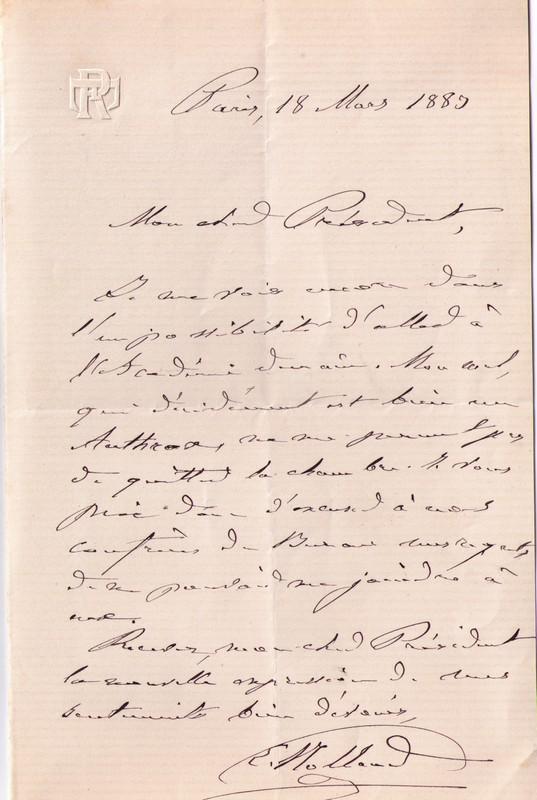 Paris, 18 Mars 1885
Mon cher Président,
Je me vois encore dans
l'impossibilité d'aller à
l'Académie demain. Mon mal,
qui décidément est bien un
Anthrax, ne me permet pas
de quitter la chambre. Je vous
prie donc d'excuser à nos
confrères du Bureau mes regrets
de ne pouvoir me joindre à
eux.
Recevez, mon cher Président
la nouvelle expression de mes
sentiments bien dévoués,
E. Rolland